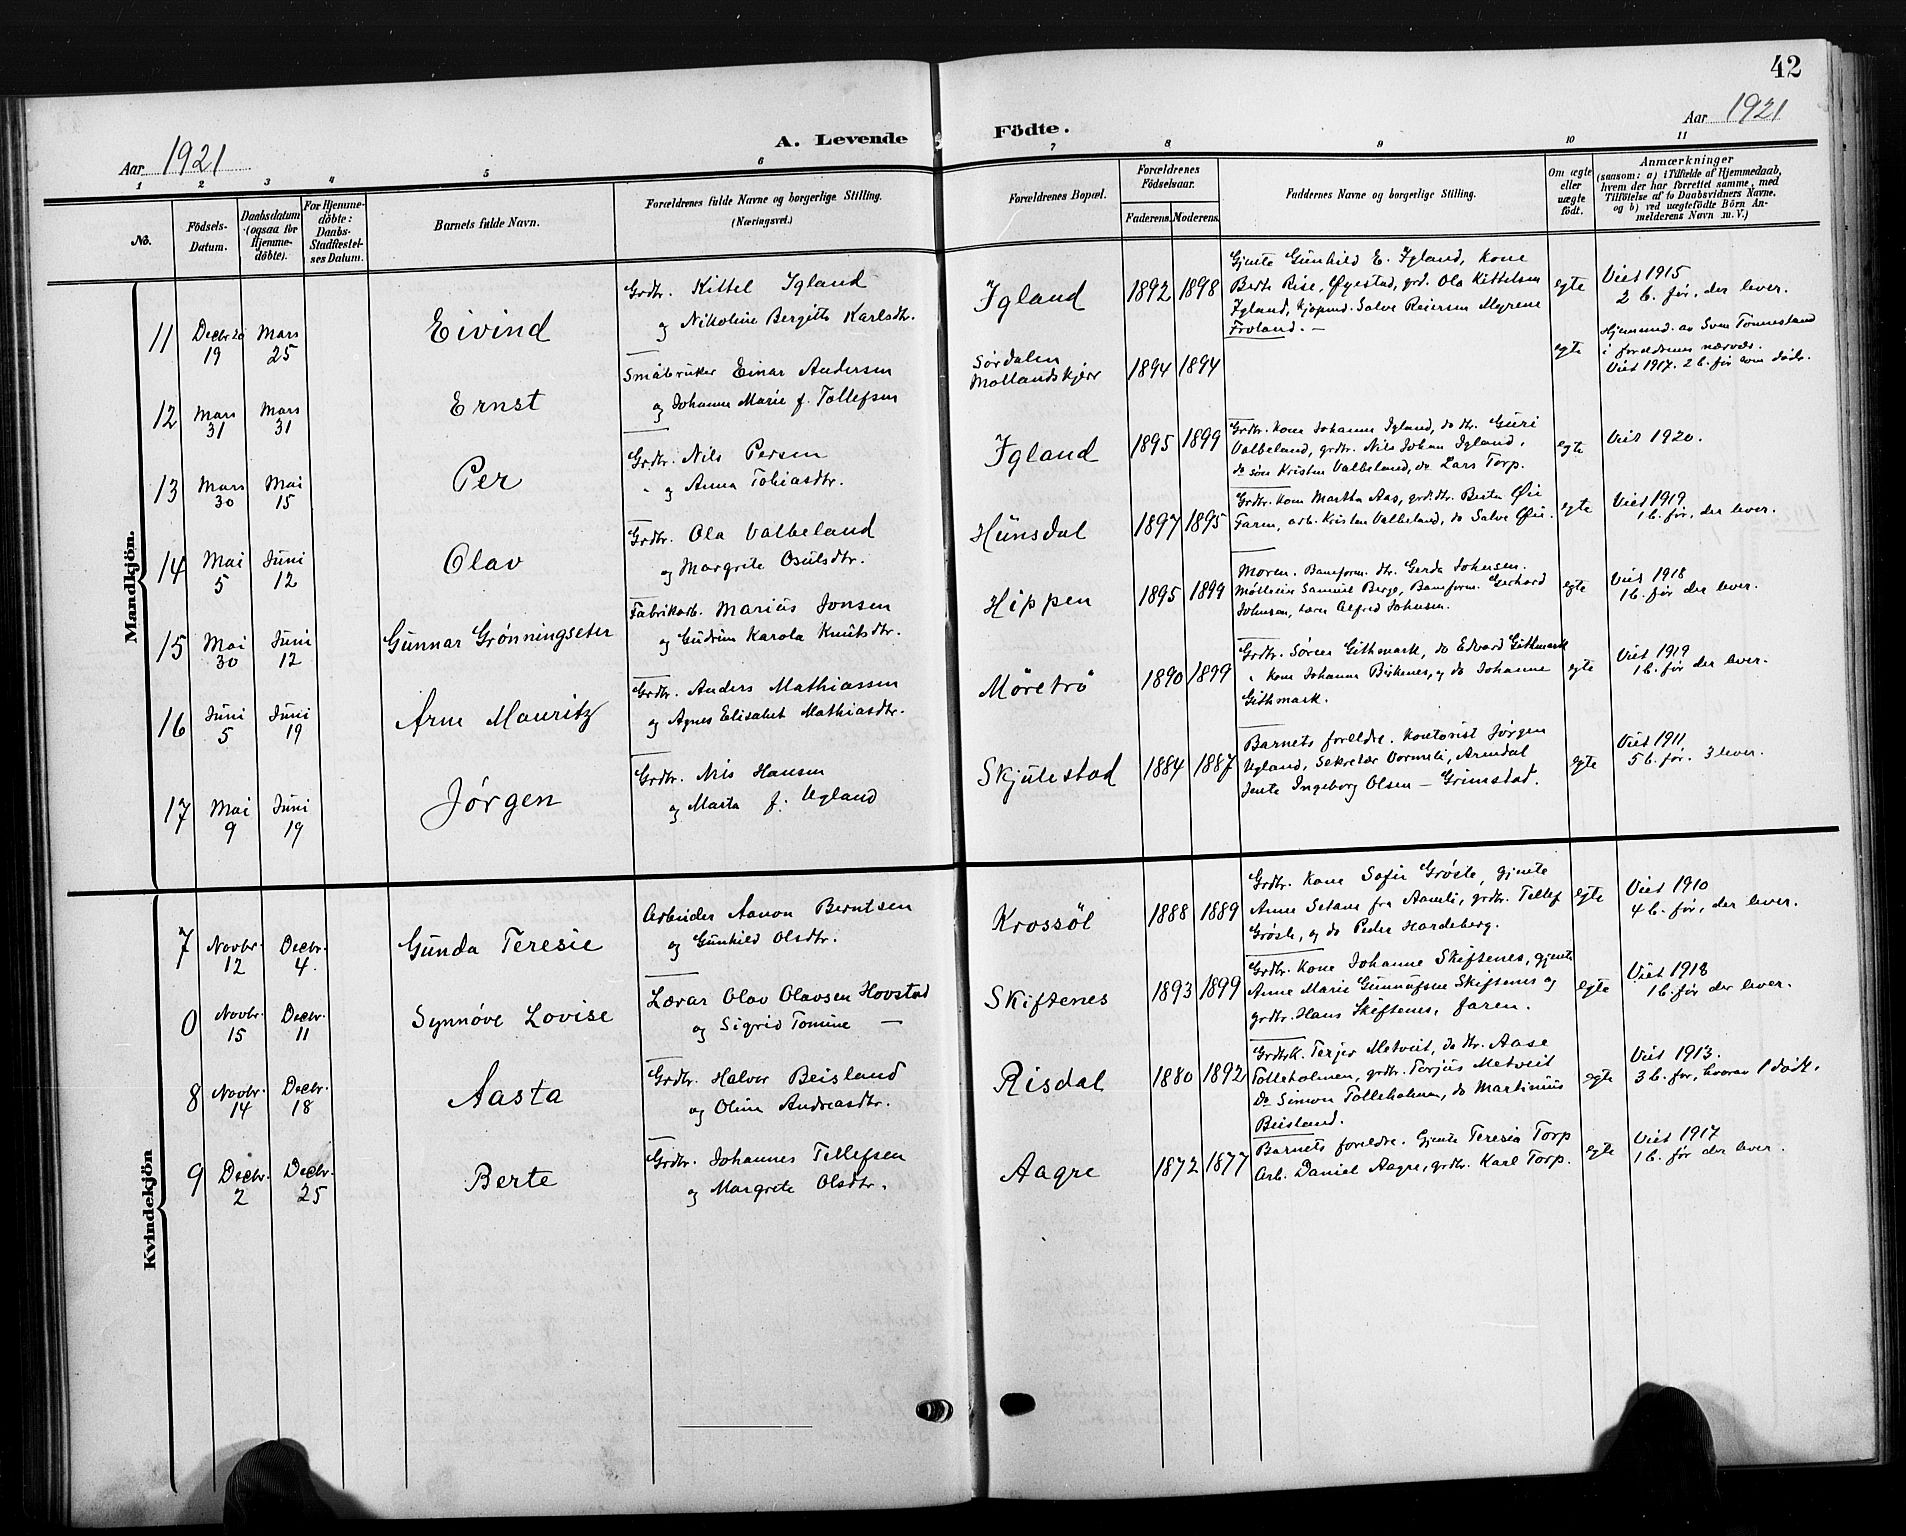 42
Aar 1921
A. Levende Födte.
Aar 1921
1 2 3 4 5 6 7 8 9 10 11
No.
Födsels-Datum.
Daabsdatum (ogsaa for Hjemme-döbte).
For Hjemme-döbte: Daabs-Stadfæstel-ses Datum.
Barnets fulde Navn.
Forældrenes fulde Navne og borgerlige Stilling. (Næringsvei.)
Forældrenes Bopæl.
Forældrenes Födselsaar.
Faderens. Moderens.
Faddernes Navne og borgerlige Stilling.
Om ægte eller uægte födt.
Anmærkninger
(saasom: a) i Tilfælde af Hjemmedaab,
hvem der har forrettet samme, med
Tilföielse af to Daabsvidners Navne.
og b) ved uægtefödte Börn An-
melderens Navn m. V.)
Mandkjön.
11 Decbr 20 19 Mars 25 Eivind
Grdbr. Kittel Igland
og Nikoline Bergitte Karlsdtr.
Igland 1892 1898
Gjente Gunhild E. Igland, kone
Berte Rise, Øyestad, grd. Ola Kittelsen
Igland, kjøpmd. Salve Reiersen Myrene
Froland. —
egte
Viet 1915
2 b. før, der lever.
12 Mars 31 Mars 31 Ernst
Småbruker Einar Andersen
og Johanne Marie f. Tollefsen
Sørdalen
Mollandskjerr 1894 1894
egte
Hjemmed. av Sven Tønnesland
i foreldrenes nærvær.
Viet 1917. 2 b. før som døde.
13 Mars 30 Mai 15 Per
Grdbr. Nils Persen
" og Anna Tobiasdtr.
Igland 1895 1899
Grdbr. kone Johanne Igland, do dtr. Guri
Valbeland, grdbr. Nils Johan Igland,
do søn Kristen Valbeland, do Lars Torp.
egte
Viet 1920.
14 Mai 5 Juni 12 Olav
Grdbr. Ola Valbeland
og Margrete Osulsdtr.
Hunsdal 1897 1895
Grdbr. kone Martha Aas, grd.dtr. Berta Øie
Faren, arb. Kristen Valbeland, do Salve Øie.
egte
Viet 1919
1 b. før, der lever.
15 Mai 30 Juni 12 Gunnar Grønningseter
Fabrikarb. Marius Jonsen
og Gudrun Karola Knutsdtr.
Hippen 1895 1899
Moren. Baneform. dtr. Gerda Johnsen.
Mølleren Samuel Berge, Baneform. Gerhard
Johnsen, Alfred Johnsen.
egte
Viet 1918
1 b. før der lever.
16 Juni 5 Juni 19 Arne Mauritz
Grdbr. Anders Mathiassen
og Agnes Elisabet Mathiasdtr.
Møretrø 1890 1899
Grdbr. Søren Githmark, do Edvard Githmark
" kone Johanne Birkenes, og do Johanne
Githmark.
egte
Viet 1919
1 b. før der lever.
17 Mai 9 Juni 19 Jørgen
Grdbr. Nils Hansen
og Marta f. Ugland
Skjulestad 1884 1887
Barnets foreldre. Kontorist Jørgen
Ugland, Sekretær Vormeli, Arendal
Jente Ingeborg Olsen — Grimstad.
egte
Viet 1911
5 b. før. 3 lever.
Kvindekjön
7 Novbr. 12 Decbr. 4. Gunda Teresie
Arbeider Aanon Berntsen
og Gunhild Olsdtr.
Krossøl 1888 1889
Grdbr. Kone Sofie Grøsle, gjente
Anne Setane fra Aamli, grdbr. Tellef
Grøsle, og do Peder Hardeberg.
egte
Viet 1910
4 b. før, der lever.
0 Novbr. 15 Decbr. 11 Synnøve Lovise
Lærar Olav Olavsen Hovstad
og Sigrid Tomine —
Skiftenes 1893 1899
Grdbr. Kone Johanne Skiftenes, gjente
Anne Marie Gunnufsene Skiftenes og
grdbr. Hans Skiftenes, faren.
egte
Viet 1918
1 b. før der lever.
8 Novbr. 14 Decbr. 18 Aasta
Grdbr. Halvor Beisland
og Oline Andreasdtr.
Risdal 1880 1892
Grdbrk. Terjer Metveit, do dtr. Aase
Tolleholmen, grdbr. Torjus Metveit
Do Simon Tolleholmen, do Martinius
Beisland.
egte
Viet 1913.
3 b. før, hvorav 1 død.
9 Decbr. 2 Decbr. 25 Berte
Grdbr. Johannes Tellefsen
og Margrete Olsdtr.
Aagre 1872 1877
Barnets foreldre. Gjente Teresia Torp
Arb. Daniel Aagre, grdbr. Karl Torp.
egte
Viet 1917
1 b. før der lever.